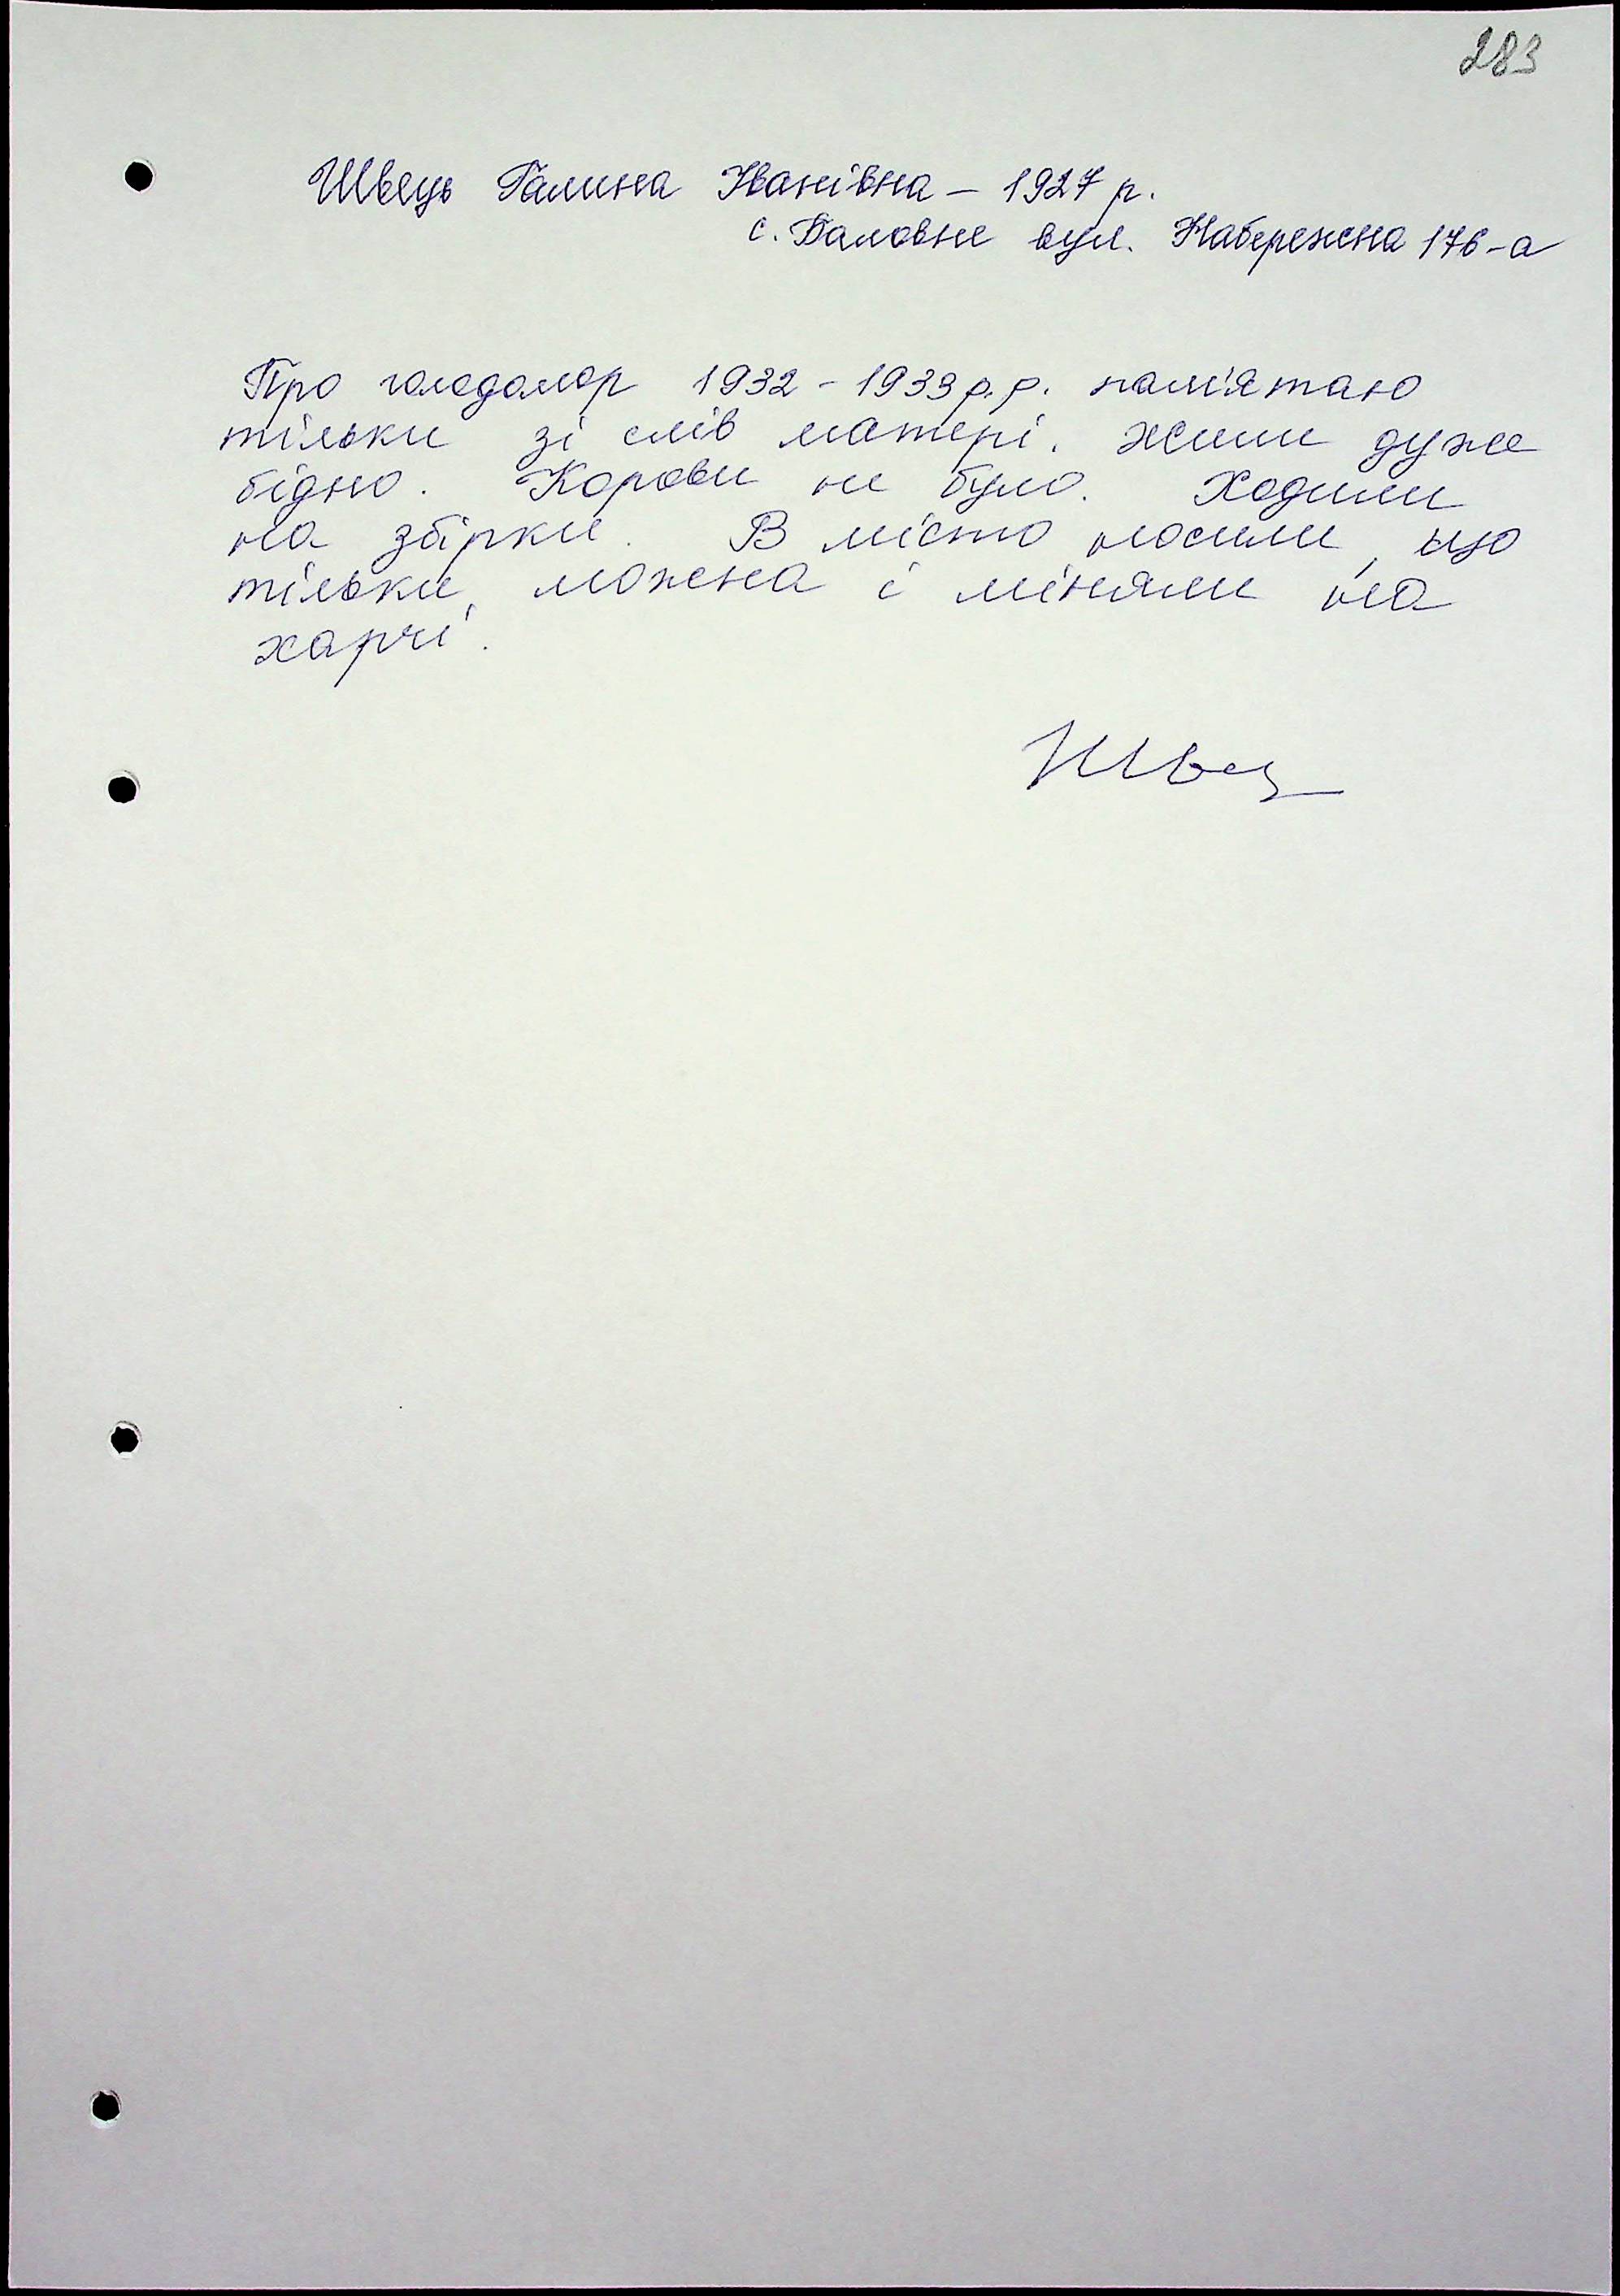 283
Швець Галина Іванівна – 1927 р.
с. Баловне вул. Набережна 176-а
Про голодомор 1932 - 1933 р.р. пам'ятаю
тільки зі слів матері. Жили дуже
бідно. Корови не було. Ходили
на збірки. В місто носили, що
тільки, можна і міняли на
харчі.
Швец